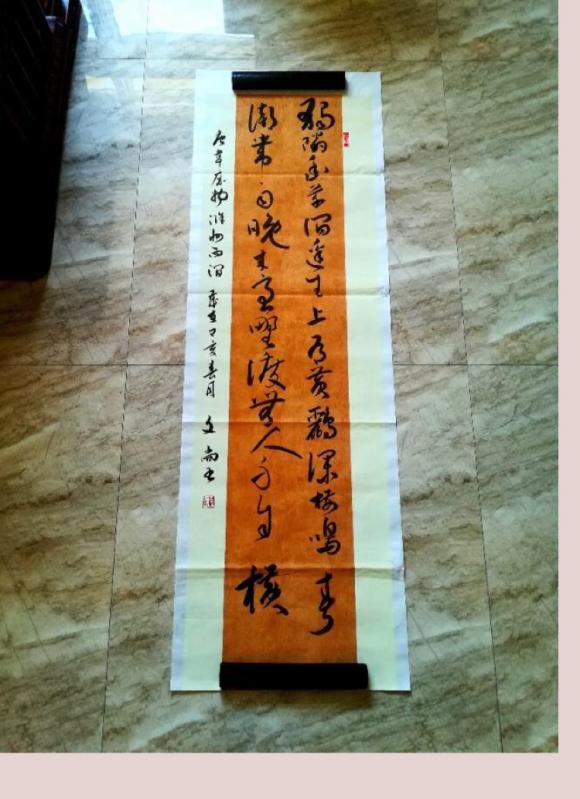 獨憐幽草澗邊生上有黃鸝深樹鳴春
潮帶雨晚來急野渡無人舟自橫
唐韋應物滁州西澗 歲在丁亥春月 文尚書